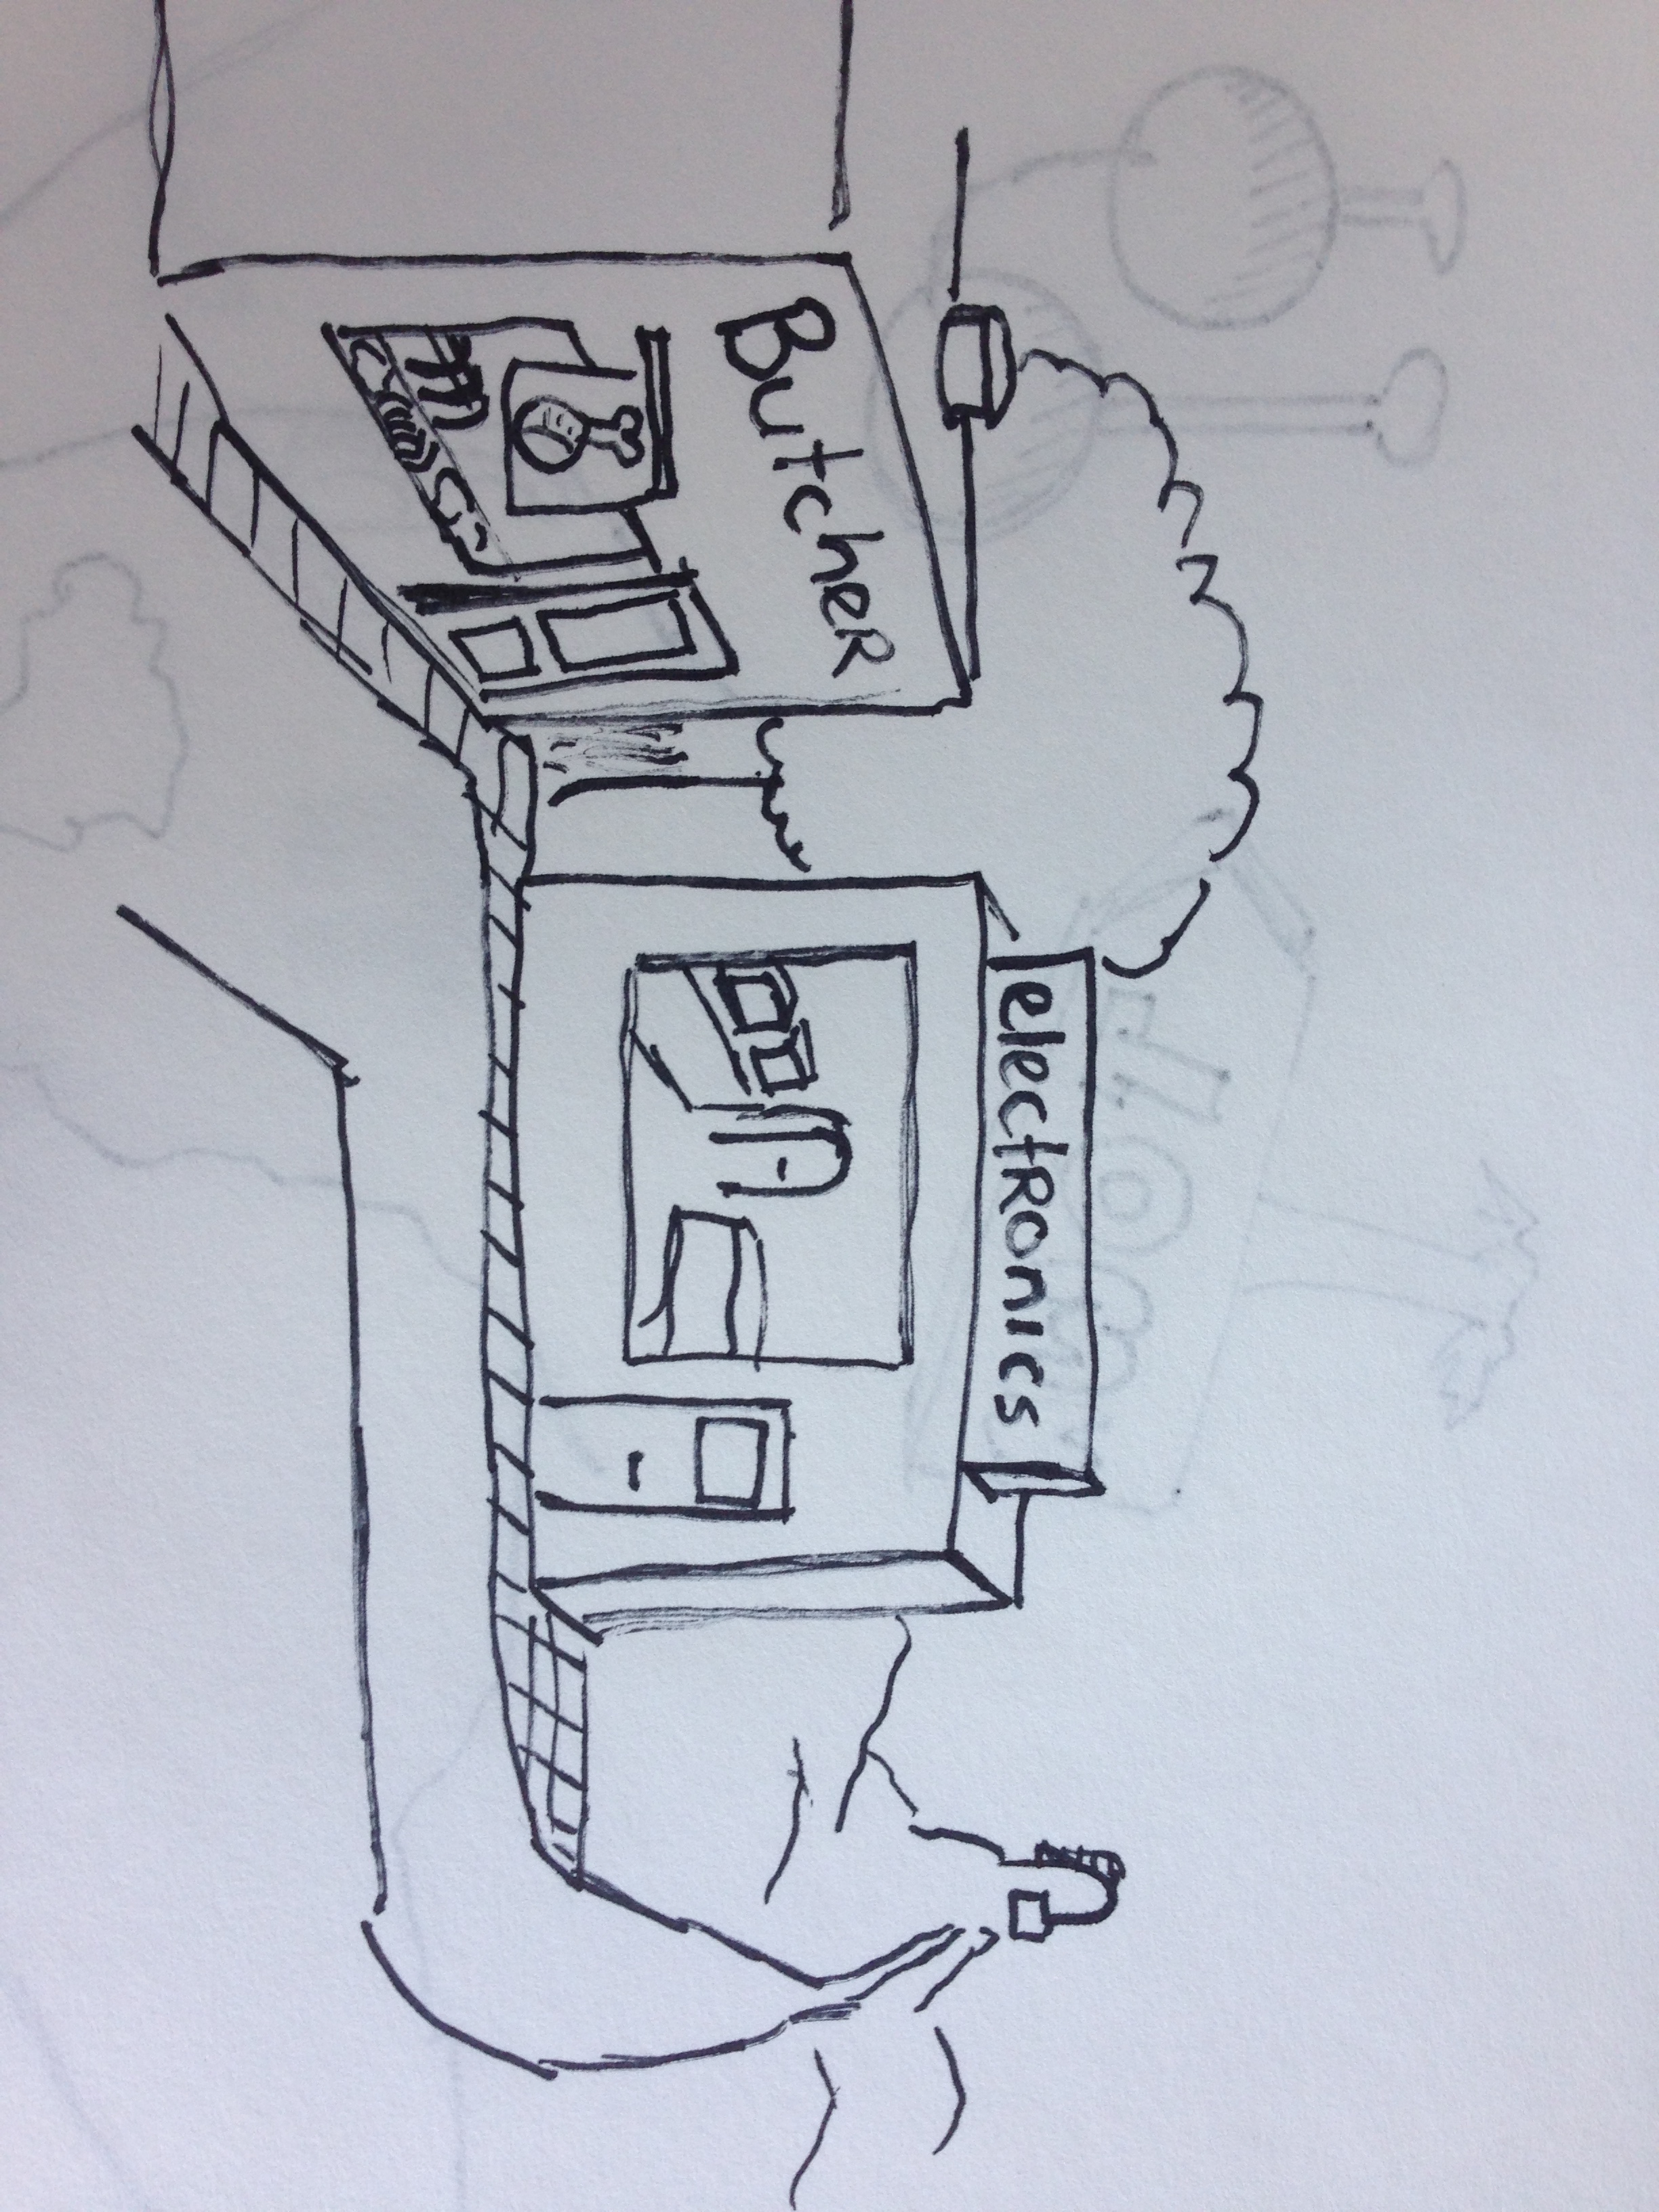 ButcheR
electRonics